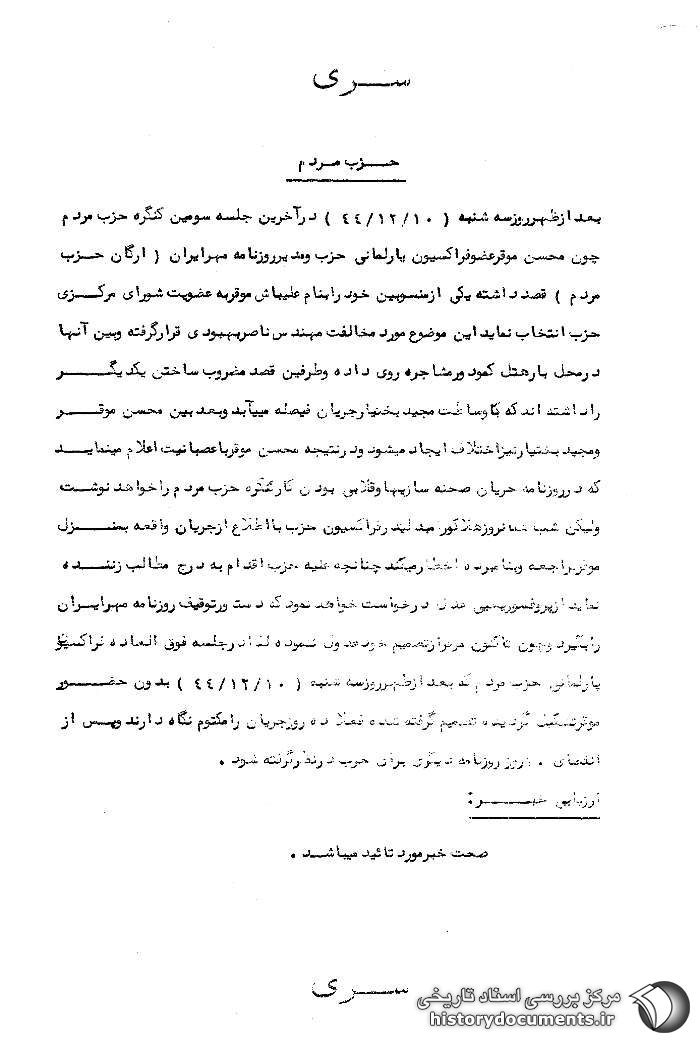 ســری
حــزب مردم
بعد ازظهرروزسه شنبه ( ٤٤/١٢/١٠ ) درآخرین جلسه سومین کنگره حزب مردم
چون محسن موقرعضوفراکسیون پارلمانی حزب ومدیرروزنامه مهرایران ( ارگان حــزب
مردم ) قصد داشته یکی ازمنسوبین خود رابنام علیباش موقربه عضویت شورای مرکــزی
حزب انتخاب نماید این موضوع مورد مخالفت مهندس ناصربهبودی قرارگرفته وبین آنها
درمحل بارهتل کمود ورمشاجره روی داده وطرفین قصد مضروب ساختن یکدیگــر
راداشته اند که باوساطت مجید بختیارجریان فیصله مییابد وبعد بین محسن موقــر
ومجید بختیارنیزاختلاف ایجاد میشود ودرنتیجه محسن موقرباعصبانیت اعلام مینمایــد
که درروزنامه جریان صحنه سازیهاوقلابی بودن کارکنگره حزب مردم راخواهد نوشت
ولیکن شب فراکسیون حزب بااطلاع ازجریان واقعه بمنــزل
موقرمراجعه وبنامبرده اخطارمیکند چنانچه علیه حزب اقدام به درج مطالب زننــده
نماید ازپروفسوریحیی عدل درخواست خواهد نمود که دستورتوقیف روزنامه مهرایــران
رابگیرد وچون تاکنون موقرازتصمیم خود عدول ننموده لذا درجلسه فوق العاده فراکسیون
پارلمانی حزب مردم که بعد ازظهرروزسه شنبه ( ٤٤/١٢/١٠ ) بدون حضــور
موقرتشکیل گردیده تصمیم گرفته شده فعلا ده روزجریان رامکتوم نگاه دارند وپس از
انقضای ١٠ روز روزنامه دیگری برای حزب درنظرگرفته شود .
ارزیابی خبــر:
صحت خبرمورد تائید میباشــد .
ســری
مرکز بررسی اسناد تاریخی
historydocuments.ir